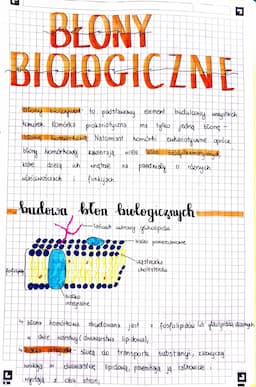 BŁONY
BIOLOGICZNE
Błony biologiczne to podstawowy element budulcowy wszystkich
komórek. Komórka prokariotyczna ma tylko jedną błonę -
błonę komórkową. Natomiast komórki eukariotyczne oprócz
błony komórkowej zawierają wiele błon
które dzielą ich wnętrze na przedziały o różnych
właściwościach i funkcjach.
budowa błon biologicznych
łańcuch cukrowy glikolipidu
białko powierzchniowe
cząsteczka
cholesterolu
fosfolipidy
białko
integralne
błona komórkowa zbudowana jest z fosfolipidów
w dwie warstwy (dwuwarstwa lipidowa),
służą do transportu substancji,
w dwuwarstwie lipidowej,